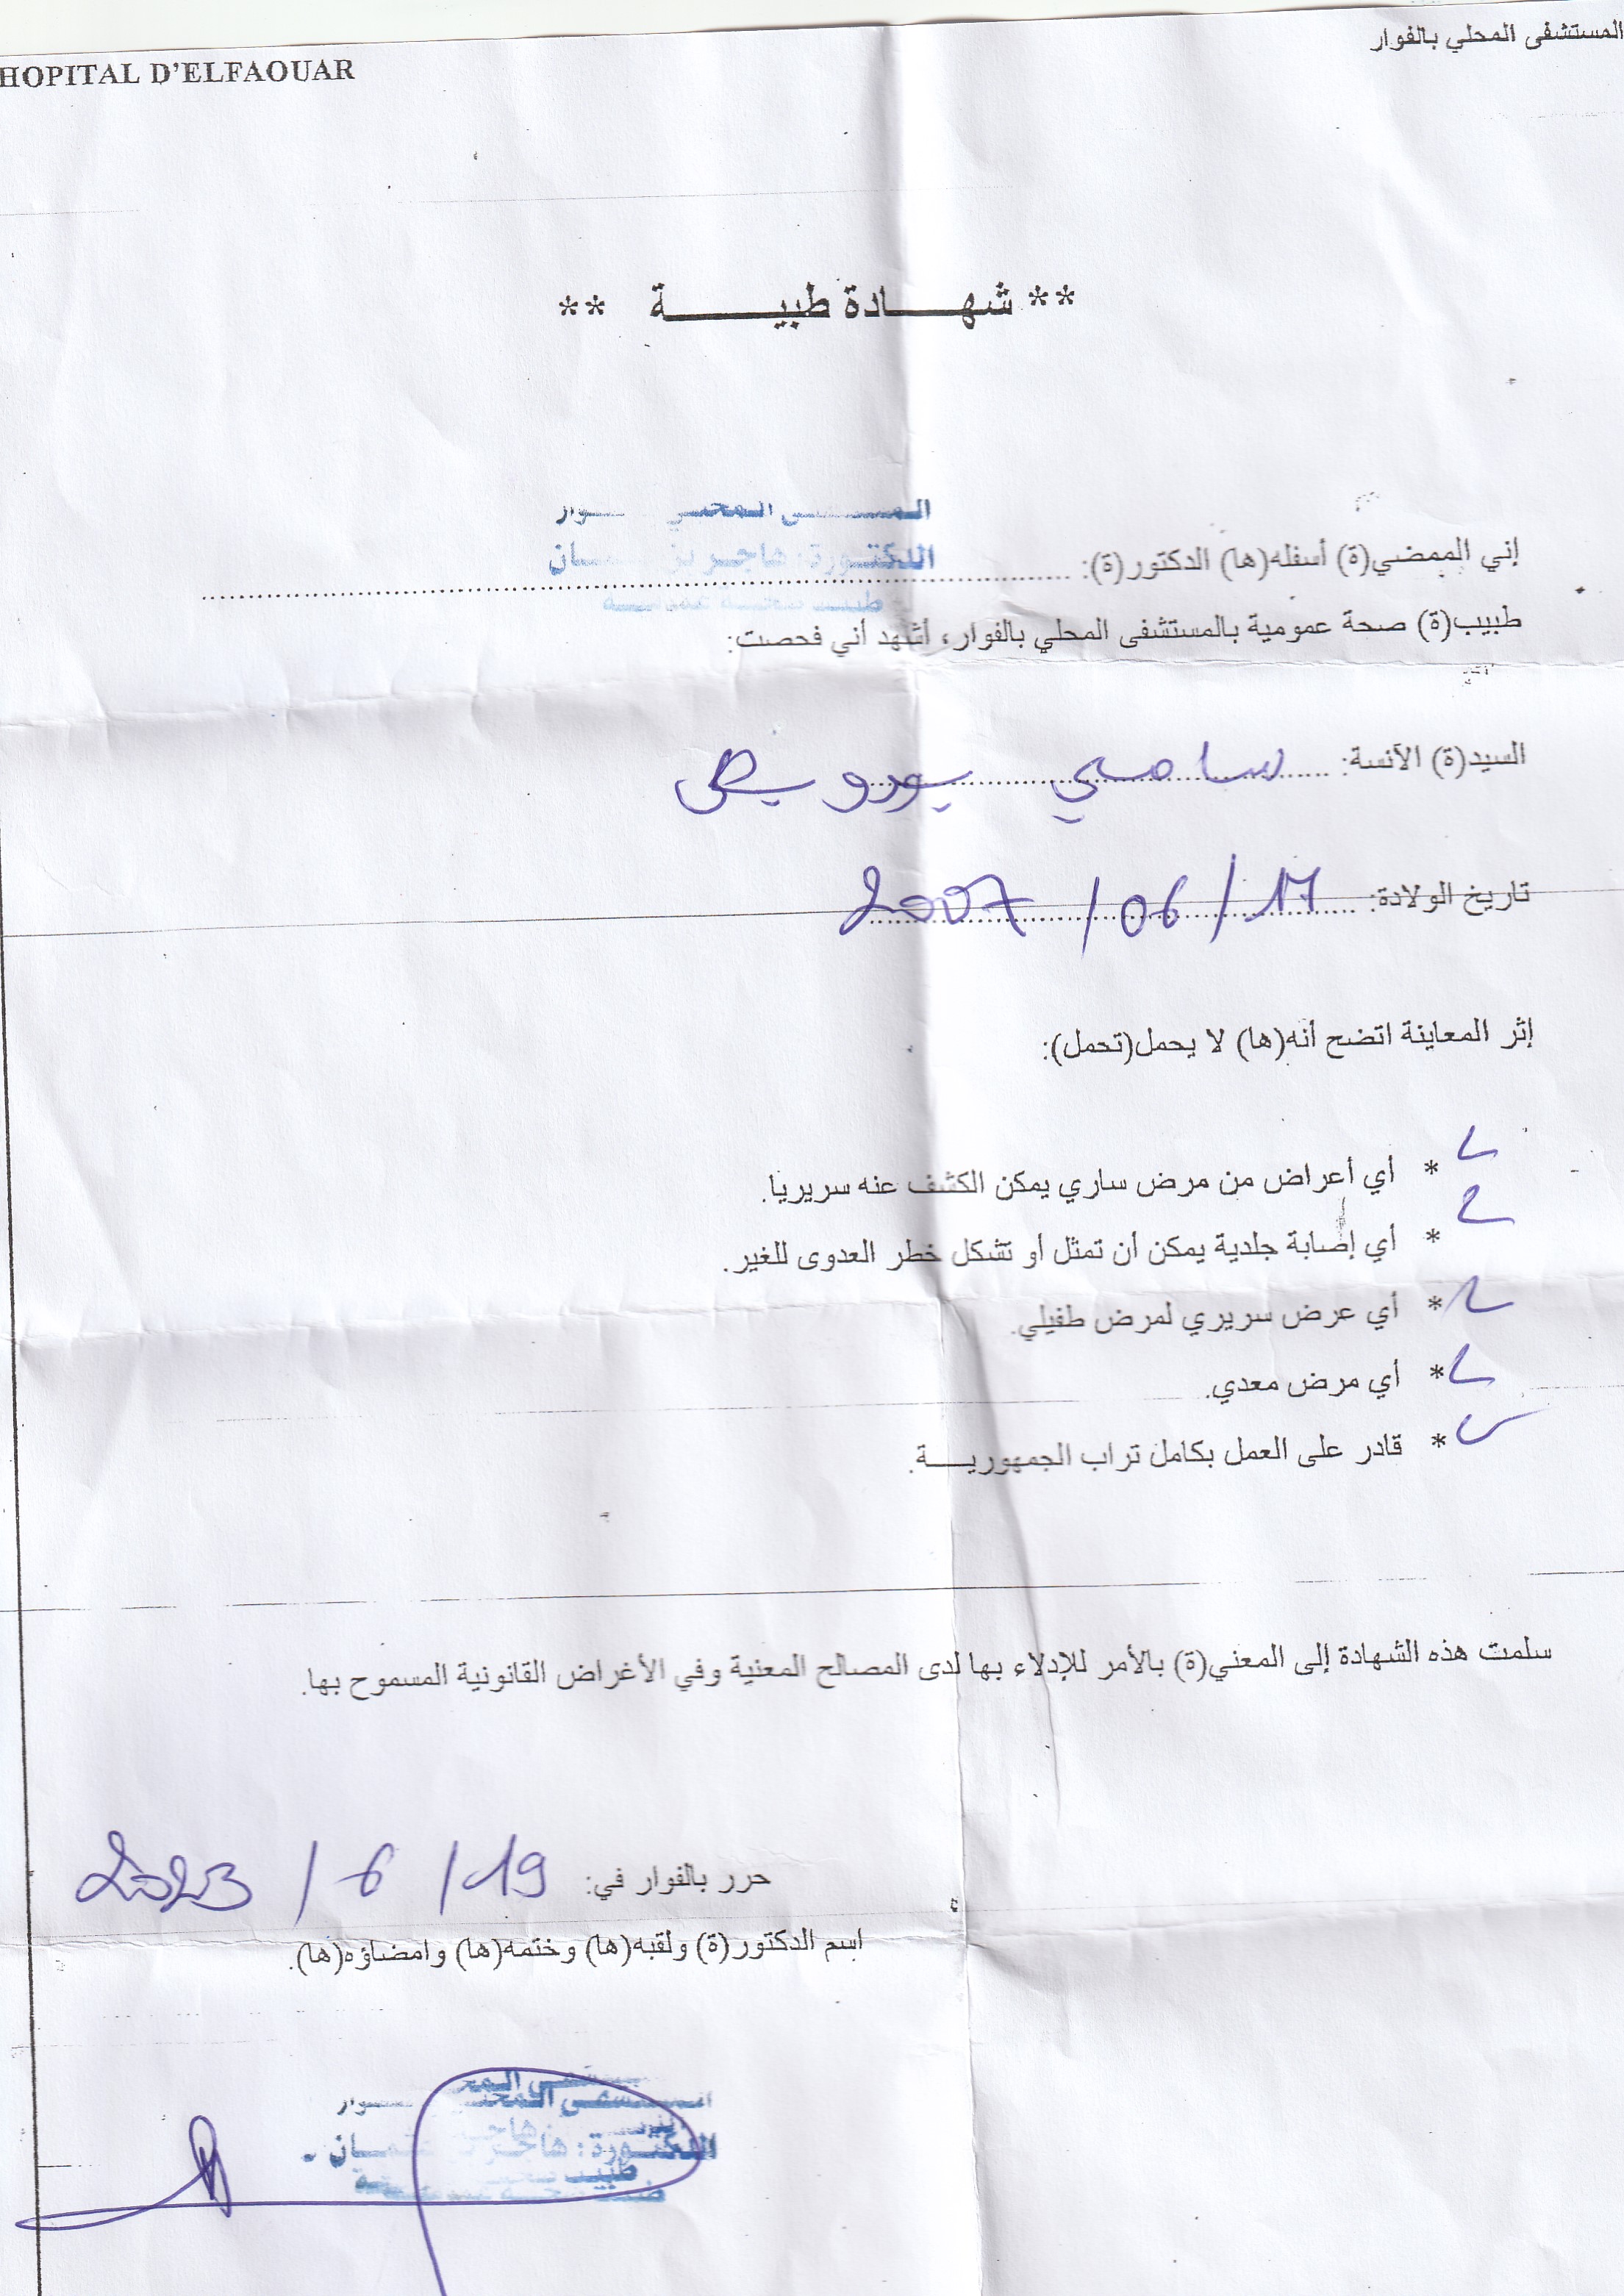 المستشفى المحلي بالفوار
HOPITAL D'ELFAOUAR
** شهـــادة طبيـــــة **
المحلي
الدكتورة: هاجر
إني الممضي(ة) أسفله(ها) الدكتور(ة):
طبيب(ة) صحة عمومية بالمستشفى المحلي بالفوار، أشهد أني فحصت:
السيد(ة) الآنسة: سامي
تاريخ الولادة: 17 / 06 / 2007
إثر المعاينة اتضح أنه(ها) لا يحمل(تحمل):
* أي أعراض من مرض ساري يمكن الكشف عنه سريريا.
* أي إصابة جلدية يمكن أن تمثل أو تشكل خطر العدوى للغير.
* أي عرض سريري لمرض طفيلي.
* أي مرض معدي.
* قادر على العمل بكامل تراب الجمهوريـــة.
سلمت هذه الشهادة إلى المعني(ة) بالأمر للإدلاء بها لدى المصالح المعنية وفي الأغراض القانونية المسموح بها.
حرر بالفوار في: 19 / 6 / 2023
اسم الدكتور(ة) ولقبه(ها) وختمه(ها) وامضاؤه(ها).
الدكتورة: هاجر